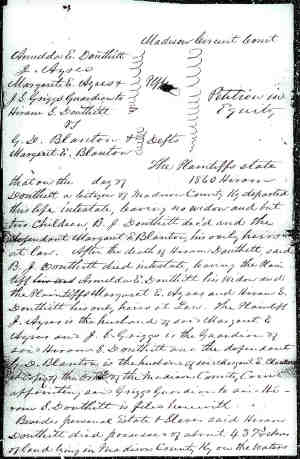 Madison Circuit Court
Armelda E. Douthitt
J. Ayres
Margaret E. Ayres &
J. G. Griggs Guardian to
Hiram E. Douthitt
Plffs
Petition in
Equity
VS
G. D. Blanton &
Margaret E. Blanton
Defts
The Plaintiffs state
that on the day of 1860 Hiram
Douthitt a citizen of Madison County Ky departed
this life intestate, leaving no widow and but
two Children, B. J. Douthitt dec'd and the
defendant Margaret E. Blanton, his only heirs
at law. After the death of Hiram Douthitt, said
B. J. Douthitt died intestate, leaving the Plain
tiff Armelda E. Douthitt his widow and
the Plaintiffs Margaret E. Ayres and Hiram E.
Douthitt his only heirs at Law. The Plaintiff
J. Ayres is the husband of said Margaret E
Ayres and J. G. Griggs is the Guardian of
said Hiram E. Douthitt and the defendant
G. D. Blanton is the husband of said Margaret E. Blanton
A copy of the order of the Madison County Court
appointing said Griggs Guardian to said Hi-
ram E. Douthitt is filed herewith.
Besides personal Estate & Slaves said Hiram
Douthitt died possessed of about 437 acres
of land lying in Madison County Ky on the Waters